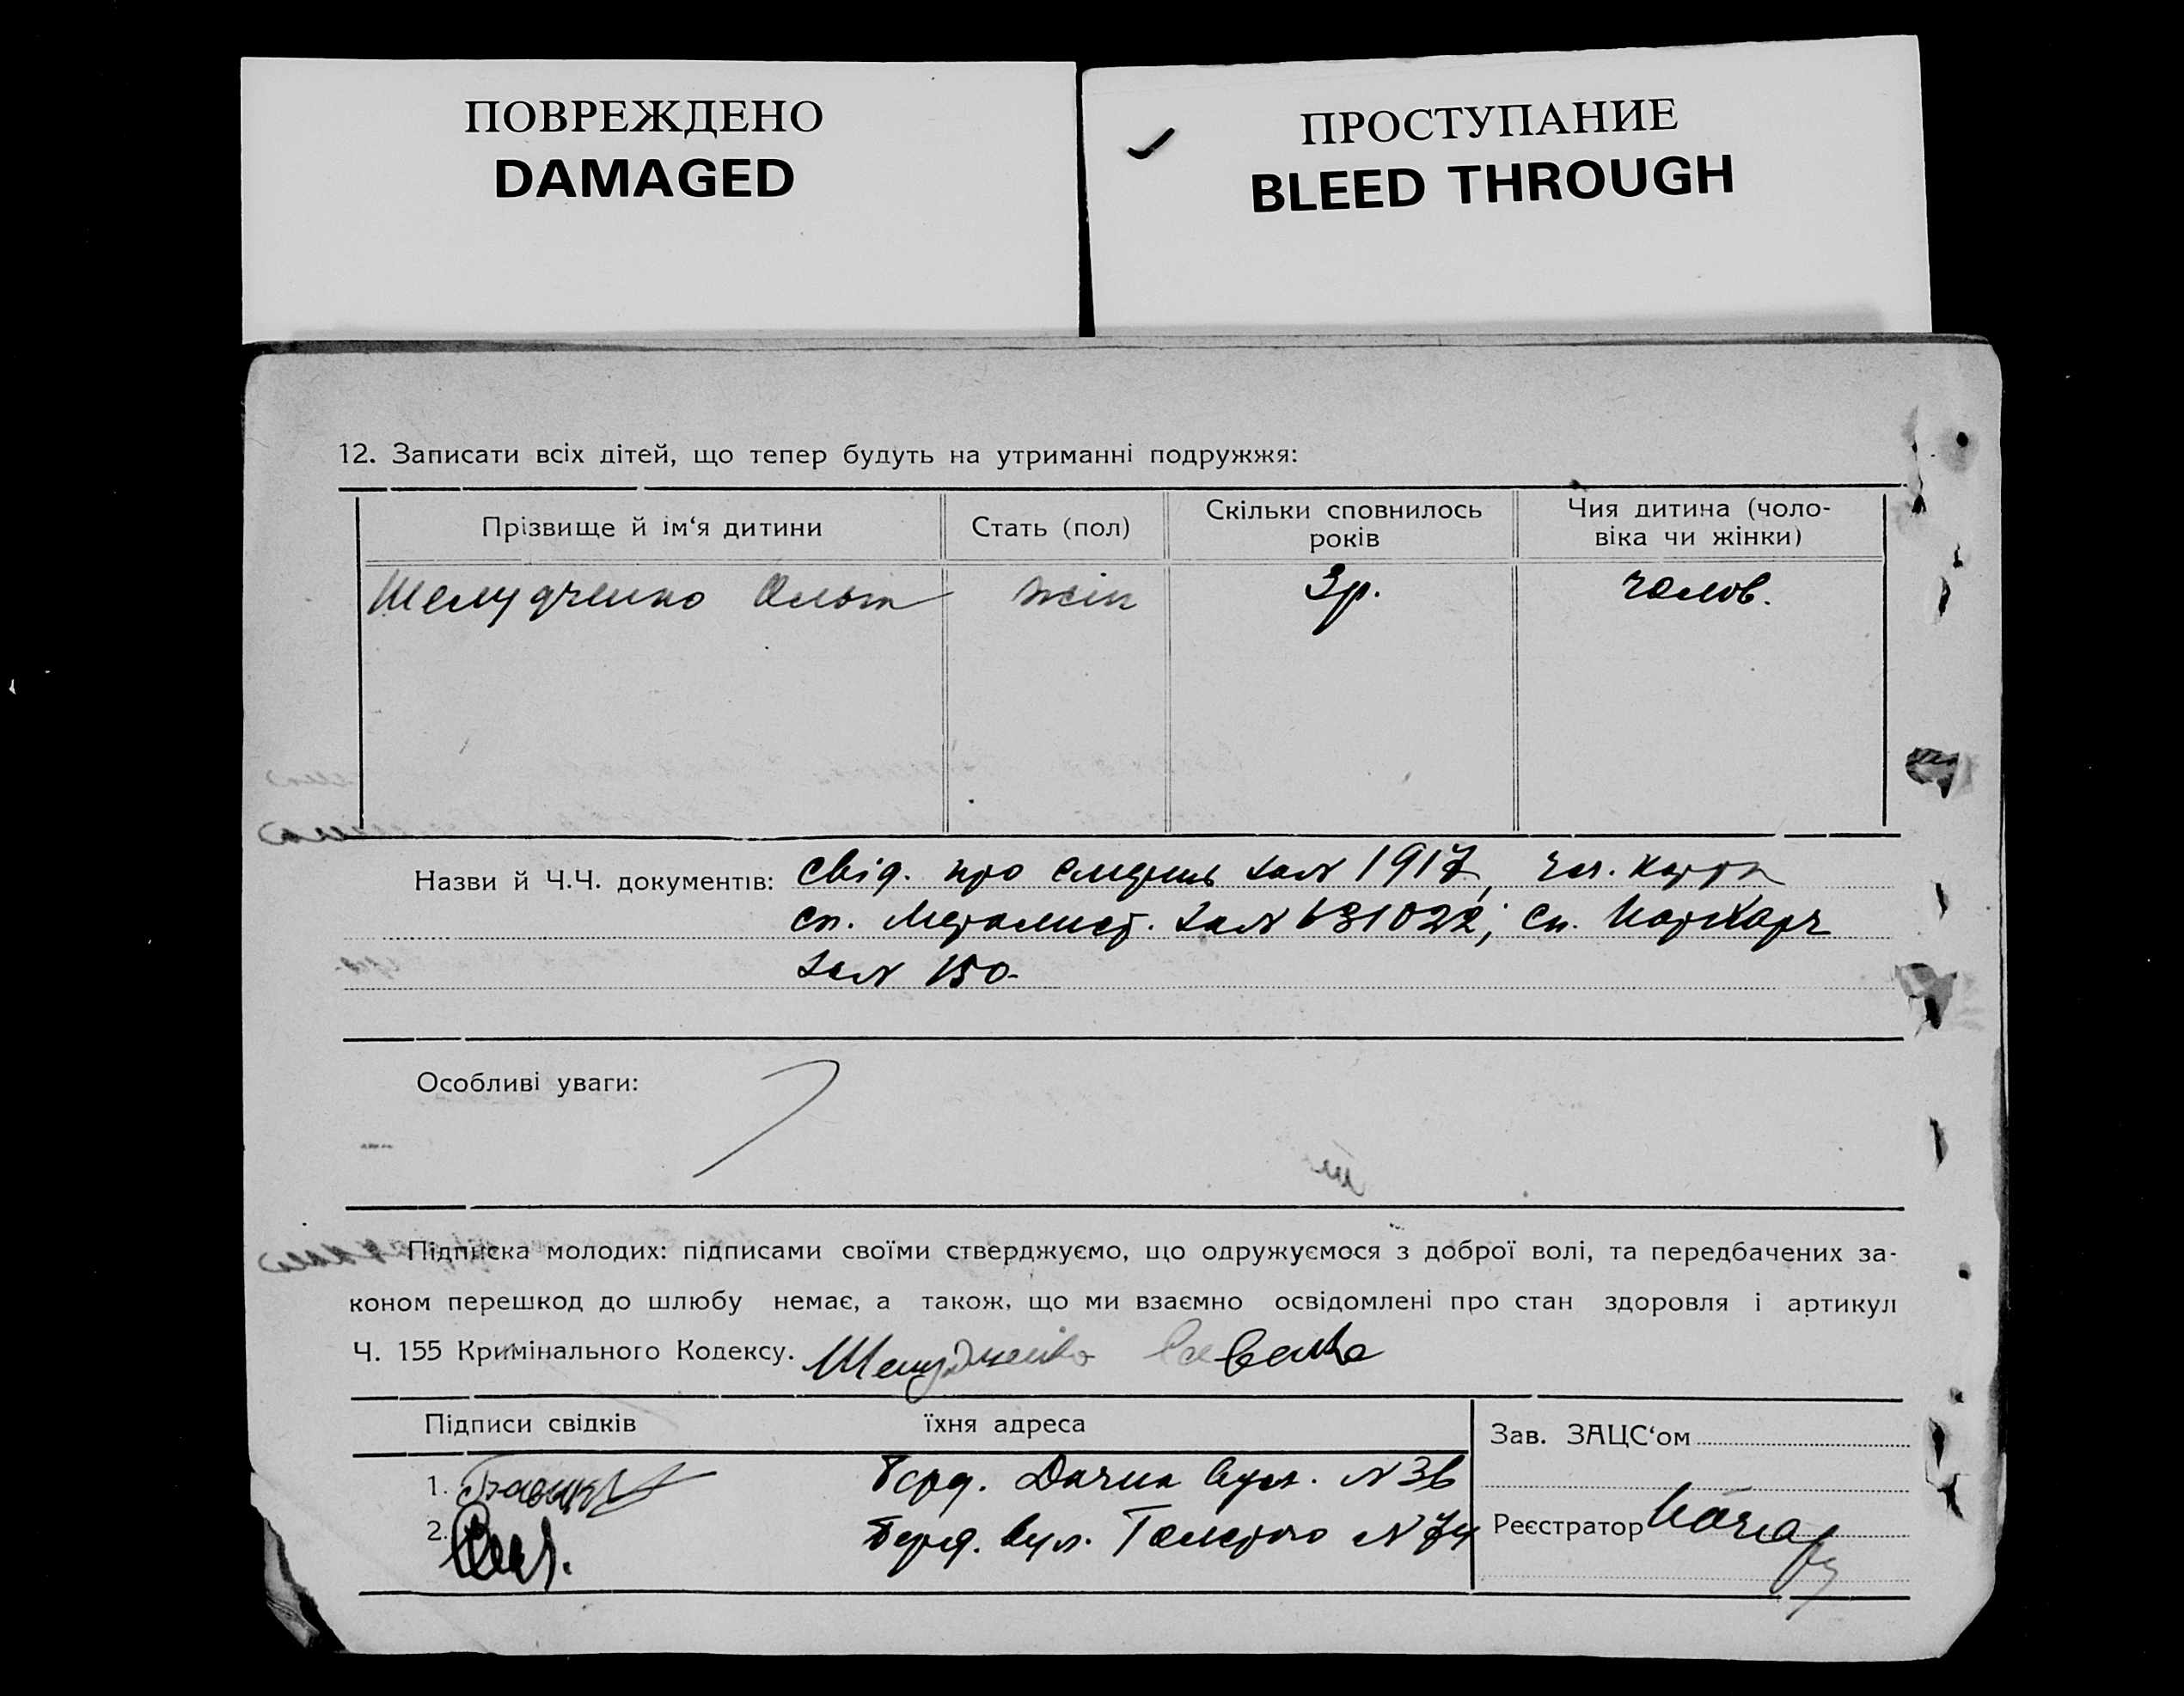 ПОВРЕЖДЕНО
DAMAGED
ПРОСТУПАНИЕ
BLEED THROUGH
12. Записати всіх дітей, що тепер будуть на утриманні подружжя:
Прізвище й ім‘я дитини
Стать (пол)
Скільки сповнилось
років
Чия дитина (чоло-
віка чи жінки)
Шелудченко Ольга жін 3р. чолов.
Назви й Ч.Ч. документів: Свід. про смерть за N 1917, чл. карти
сп. Металіст. за N 631022; сп.
за N 150-
Особливі уваги:
Підписка молодих: підписами своїми стверджуємо, що одружуємося з доброї волі, та передбачених за-
коном перешкод до шлюбу немає, а також, що ми взаємно освідомлені про стан здоровля і артикул
Ч. 155 Кримінального Кодексу. Шелудченко
Підписи свідків
їхня адреса
Зав. ЗАЦС‘ом
1. Берд. Дачна вул. N 36
2. Берд. вул. Толстого N 74
Реєстратор